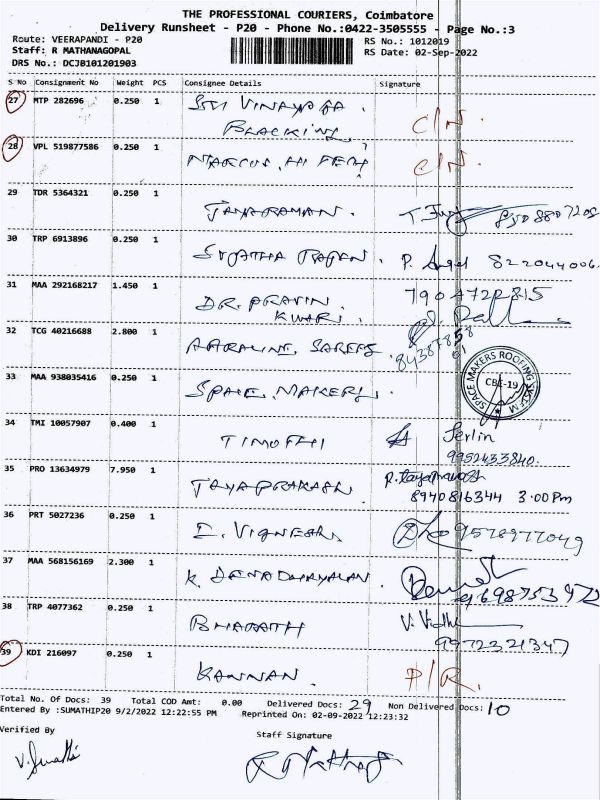 THE PROFESSIONAL COURIERS, Coimbatore
Delivery Runsheet - P20 - Phone No.:0422-3505555 - Page No.:3
Route: VEERAPANDI - P20 RS No.: 1012019
Staff: R MATHANAGOPAL RS Date: 02-Sep-2022
DRS No.: DCJB101201903
S No Consignment No Weight PCS Consignee Details Signature
27 MTP 282696 0.250 1 SRI VINAYAGA C/N.
BLACKING
28 VPL 519877586 0.250 1 MARCUS HI TECH C/N.
29 TDR 5364321 0.250 1 JAYARAMAN.
30 TRP 6913896 0.250 1 SUJATHA RAJAN. P. Angel 822044006
31 MAA 292168217 1.450 1 DR. PRAVIN KUMARI.
32 TCG 40216688 2.800 1 SAREES
33 MAA 938035416 0.250 1 SPACE MAKERS.
SPACE MAKERS ROOFING SYSTEM
CBE-19
34 TMI 10057907 0.400 1 TIMOTHI Jerlin
9952433840.
35 PRO 13634979 7.950 1 JAYAPRAKASH R. Jayaprakash
8940816344 3:00 Pm
36 PRT 5027236 0.250 1 VIGNESH 9576977049
37 MAA 568156169 2.300 1 K. DENADHAYALAN.
9698753972
38 TRP 4077362 0.250 1 BHARATH V. Vidhu
9972321347
39 KDI 216097 0.250 1 KANNAN. D/R.
Total No. Of Docs: 39 Total COD Amt: 0.00 Delivered Docs: 29 Non Delivered Docs: 10
Entered By :SUMATHIP20 9/2/2022 12:22:55 PM Reprinted On : 02-09-2022 12:23:32
Verified By Staff Signature
V. Sumathi